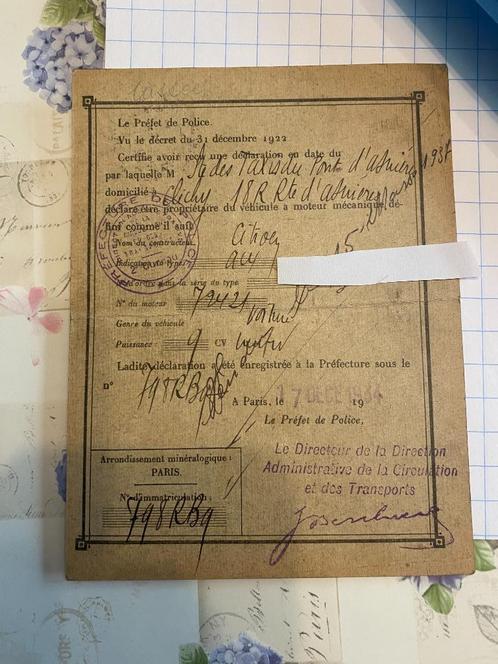 Le Préfet de Police.
Vu le décret du 31 décembre 1922
Certifie avoir reçu une déclaration en date du
par laquelle M Sté des Taxis du Pont d'Asnières
domicilié à Clichy 18 R Rte d'Asnières
déclare être propriétaire du véhicule à moteur mécanique, dé-
fini comme il suit
Nom du constructeur Citroen
Indication du type
N° d'ordre dans la série du type
N° du moteur 79421
Genre du véhicule voiture
Puissance 9 CV
Ladite déclaration a été enregistrée à la Préfecture sous le
n° 798RB9
A Paris, le 17 DECE 1934 19
Le Préfet de Police,
Le Directeur de la Direction
Administrative de la Circulation
et des Transports
Arrondissement minéralogique :
PARIS.
N° d'immatriculation :
798RB9
PREFECTURE DE POLICE